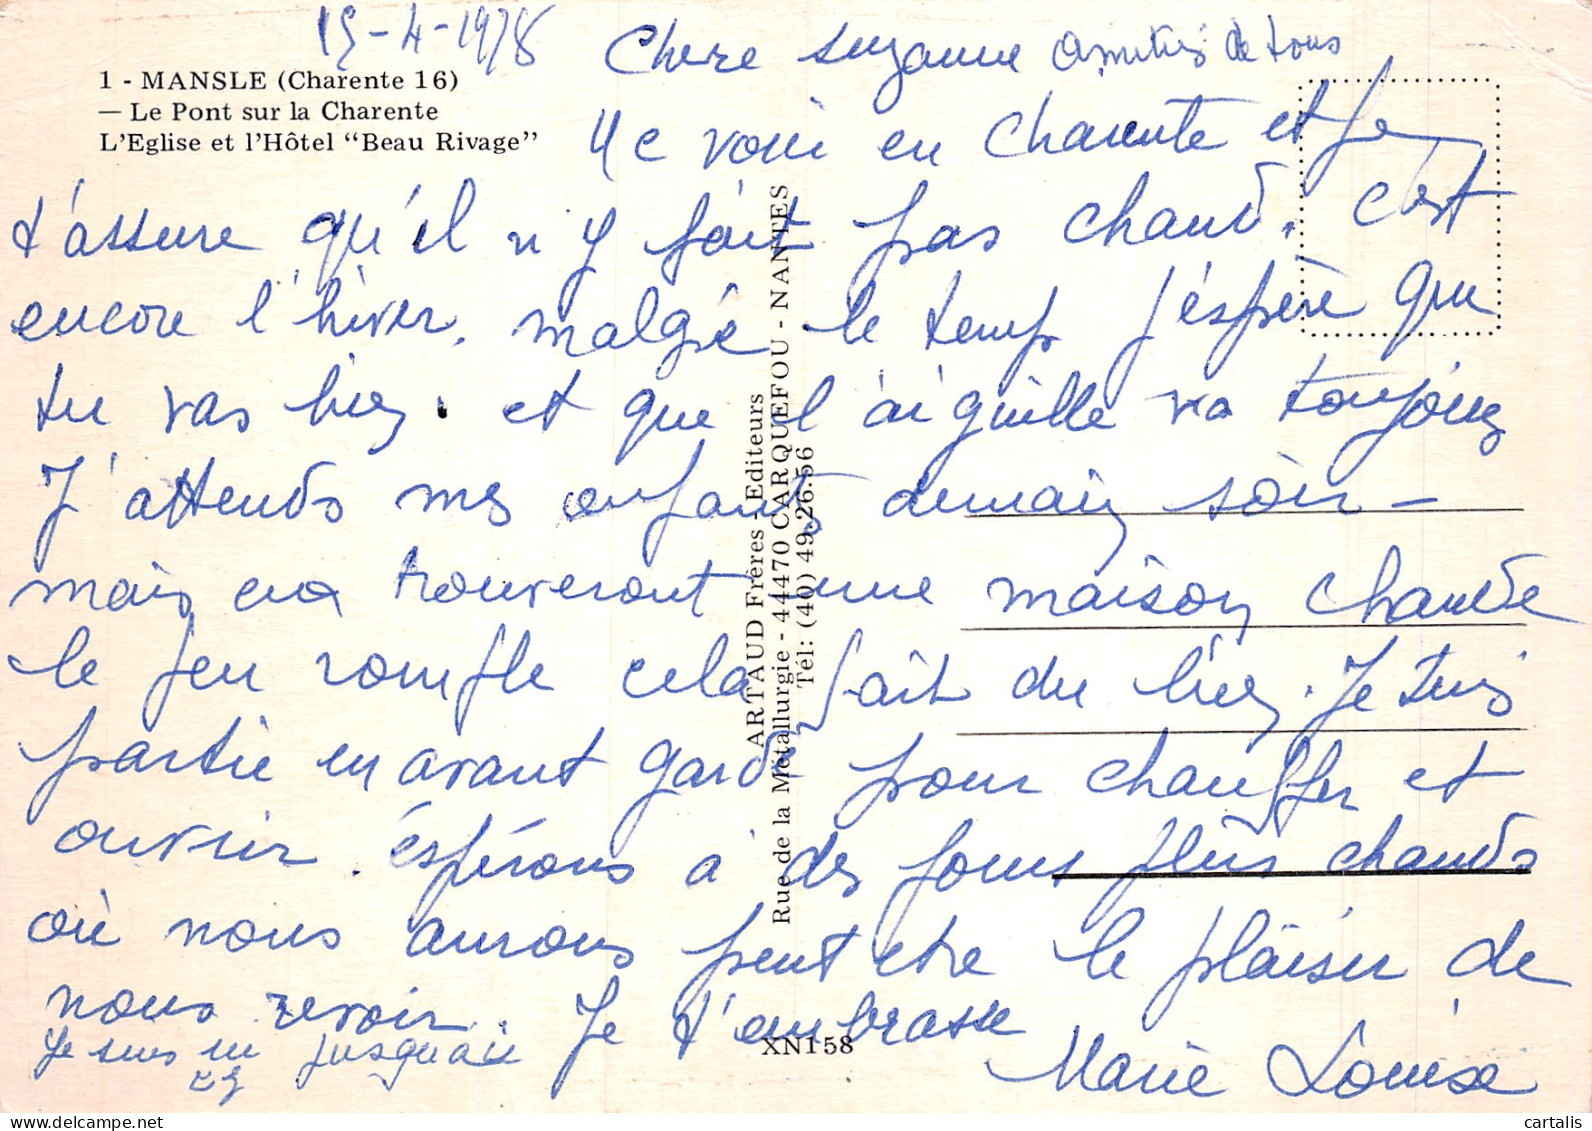 15-4-1978
Chere Suzanne amitiés de tous
1 - MANSLE (Charente 16)
— Le Pont sur la Charente
L'Eglise et l'Hôtel "Beau Rivage"
Me voici en Charente et Je
t'assure qu'il n'y fait pas chaud. C'est
encore l'hiver. malgré le temps j'éspère que
tu vas bien. et que l'aiguille va toujours
J'attends mes enfants demain soir -
mais eux trouveront une maison chaude
le feu ronfle cela fait du bien. Je suis
partie en avant garde pour chauffer et
ouvrir. éspérons à des jours plus chauds
où nous aurons peut etre le plaisir de
nous revoir. Je t'embrasse
Je suis ici jusqu'au
Marie Louise
ARTAUD Frères - Editeurs
Rue de la Métallurgie - 44470 CARQUEFOU - NANTES
Tél: (40) 49.26.56
XN158
cartalis